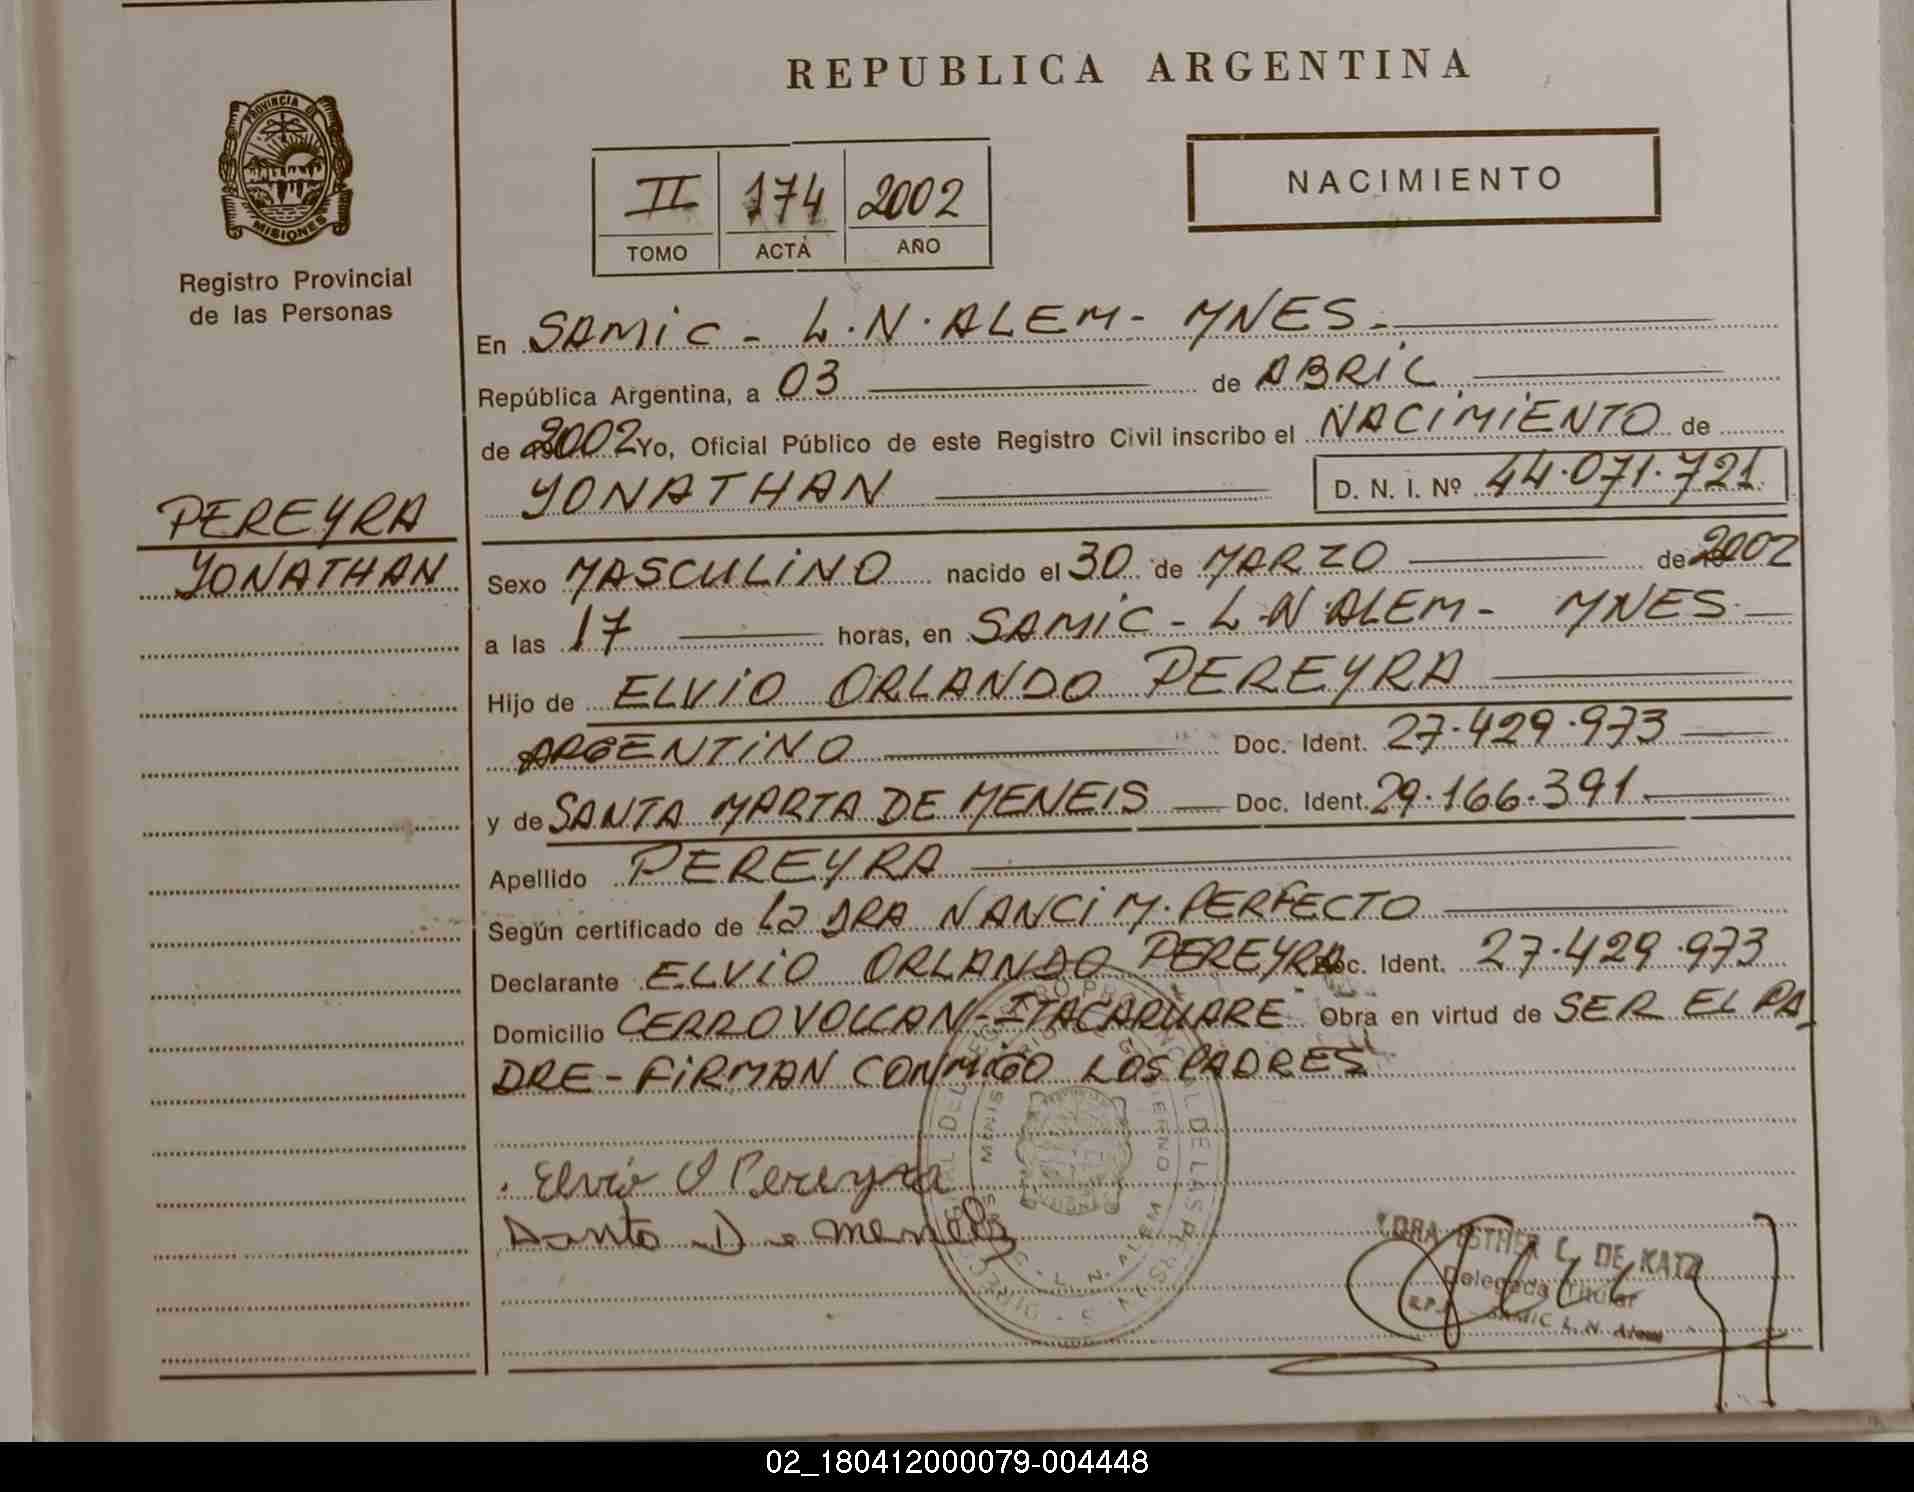 REPUBLICA ARGENTINA
PROVINCIA DE
MISIONES
Registro Provincial
de las Personas
II 174 2002
TOMO ACTA AÑO
NACIMIENTO
En SAMIC - L.N. ALEM - MNES.
República Argentina, a 03 de ABRIL
de 2002 Yo, Oficial Público de este Registro Civil inscribo el NACIMIENTO de
YONATHAN D. N. I. Nº 44.071.721
PEREYRA
YONATHAN
Sexo MASCULINO nacido el 30 de MARZO de 2002
a las 17 horas, en SAMIC - L.N. ALEM - MNES.
Hijo de ELVIO ORLANDO PEREYRA
ARGENTINO Doc. Ident. 27.429.973
y de SANTA MARTA DE MENEIS Doc. Ident. 29.166.391
Apellido PEREYRA
Según certificado de La DRA NANCI M. PERFECTO
Declarante ELVIO ORLANDO PEREYRA Doc. Ident. 27.429.973
Domicilio CERRO VOLCAN - ITACARUARE - Obra en virtud de SER EL PA-
DRE - FIRMAN CONMIGO LOS PADRES
Elvio O Pereyra
Santa De Meneis
ESTHER L. DE KATZ
Delegada Titular
SAMIC L. N. Alem
02_180412000079-004448